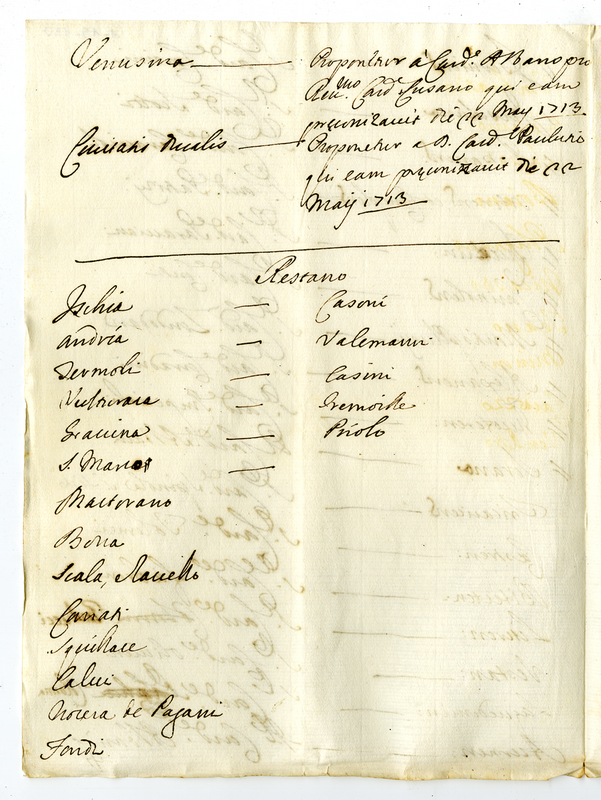 Venusina — Proponetur à Card.e Albano pro
Reu.mo Card.e Cusano qui eam
pręconizauit die 22 May 1713.
Ciuitatis Ducalis — Proponetur a D. Card.e Paulutio
qui eam pręconizauit Die 22
Maij 1713
Restano
Ischia — Casoni
Andria — Valemanni
Termoli — Casini
— Tremoille
Grauina — Priolo
S. Marco —
Martorano
Boua
Scala, Rauello
Cariati
Squillace
Calui
Nocera de Pagani
Fondi